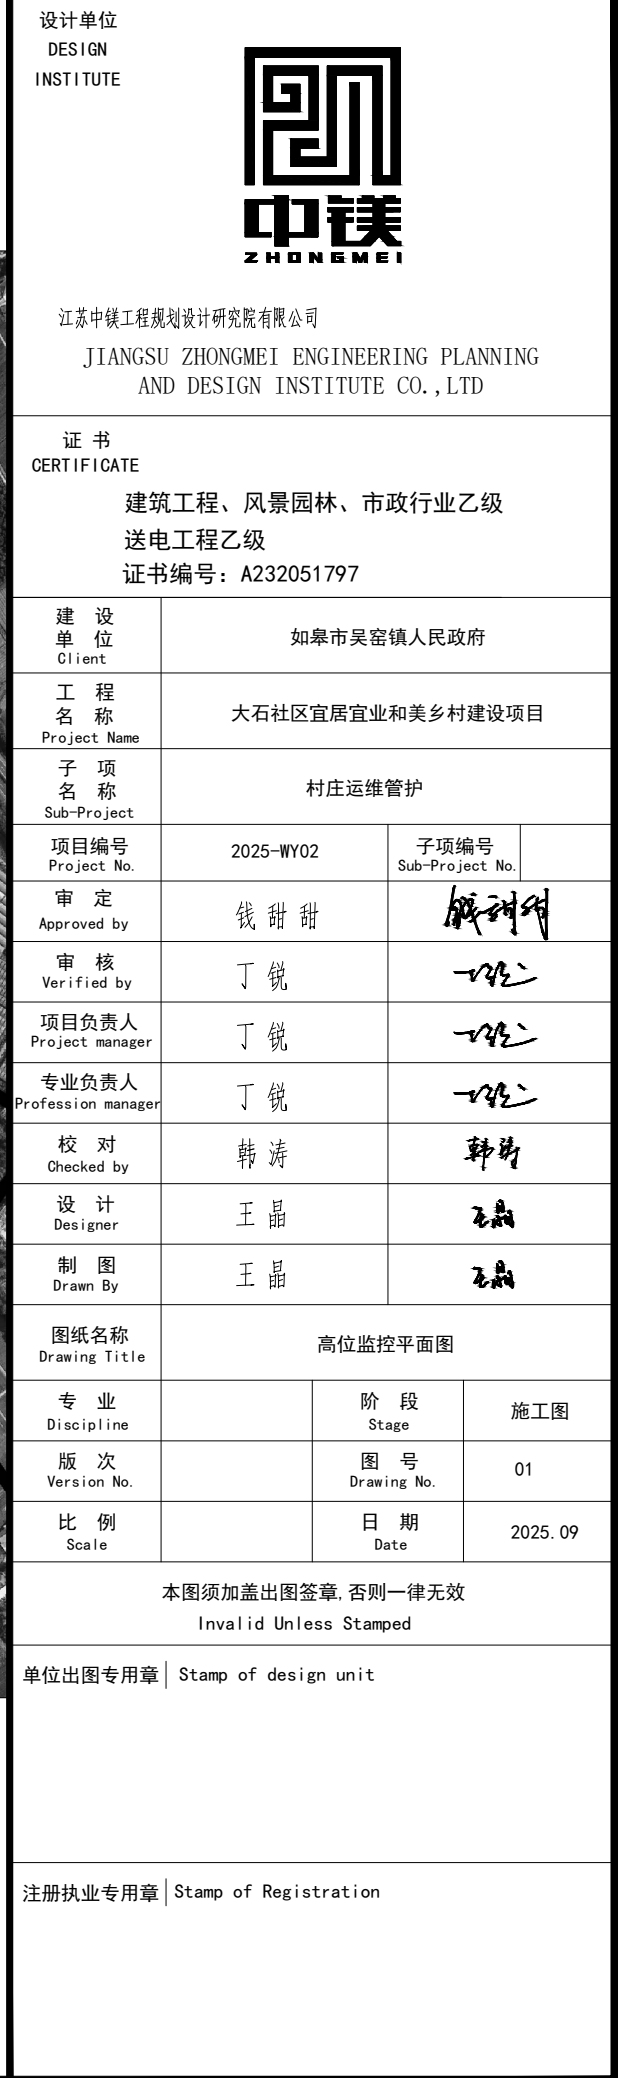 设计单位
DESIGN
INSTITUTE
中镁
ZHONGMEI
江苏中镁工程规划设计研究院有限公司
JIANGSU ZHONGMEI ENGINEERING PLANNING
AND DESIGN INSTITUTE CO.,LTD
证 书
CERTIFICATE
建筑工程、风景园林、市政行业乙级
送电工程乙级
证书编号：A232051797
建 设
单 位
Client
如皋市吴窑镇人民政府
工 程
名 称
Project Name
大石社区宜居宜业和美乡村建设项目
子 项
名 称
Sub-Project
村庄运维管护
项目编号
Project No.
2025-WY02
子项编号
Sub-Project No.
审 定
Approved by
钱甜甜
钱甜甜
审 核
Verified by
丁锐
丁锐
项目负责人
Project manager
丁锐
丁锐
专业负责人
Profession manager
丁锐
丁锐
校 对
Checked by
韩涛
韩涛
设 计
Designer
王晶
王晶
制 图
Drawn By
王晶
王晶
图纸名称
Drawing Title
高位监控平面图
专 业
Discipline
阶 段
Stage
施工图
版 次
Version No.
图 号
Drawing No.
01
比 例
Scale
日 期
Date
2025.09
本图须加盖出图签章,否则一律无效
Invalid Unless Stamped
单位出图专用章 Stamp of design unit
注册执业专用章 Stamp of Registration